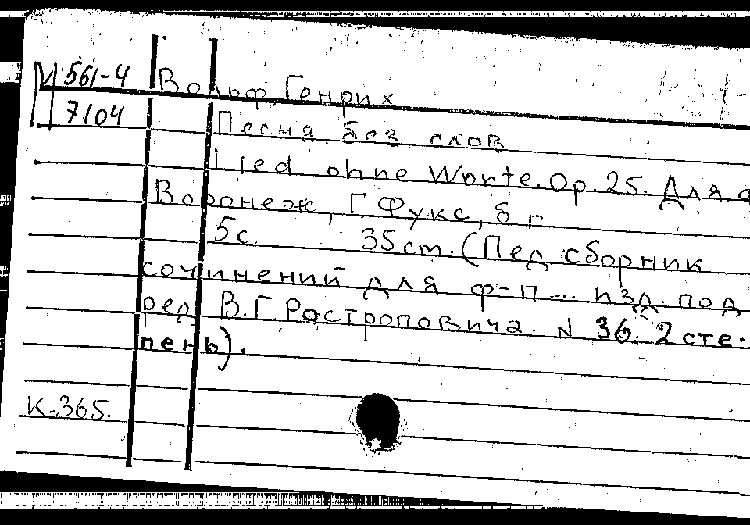 М 561-4 Вольф, Генрих
7104 Песня без слов
Lied ohne Worte. Op. 25. Для ф
Воронеж, Г. Фукс, б. г.
5 с. 35 см. (Пед. сборник
сочинений для ф-п ... изд. под
ред. В. Г. Ростроповича. N 36. 2 сте-
пень).
К-365.